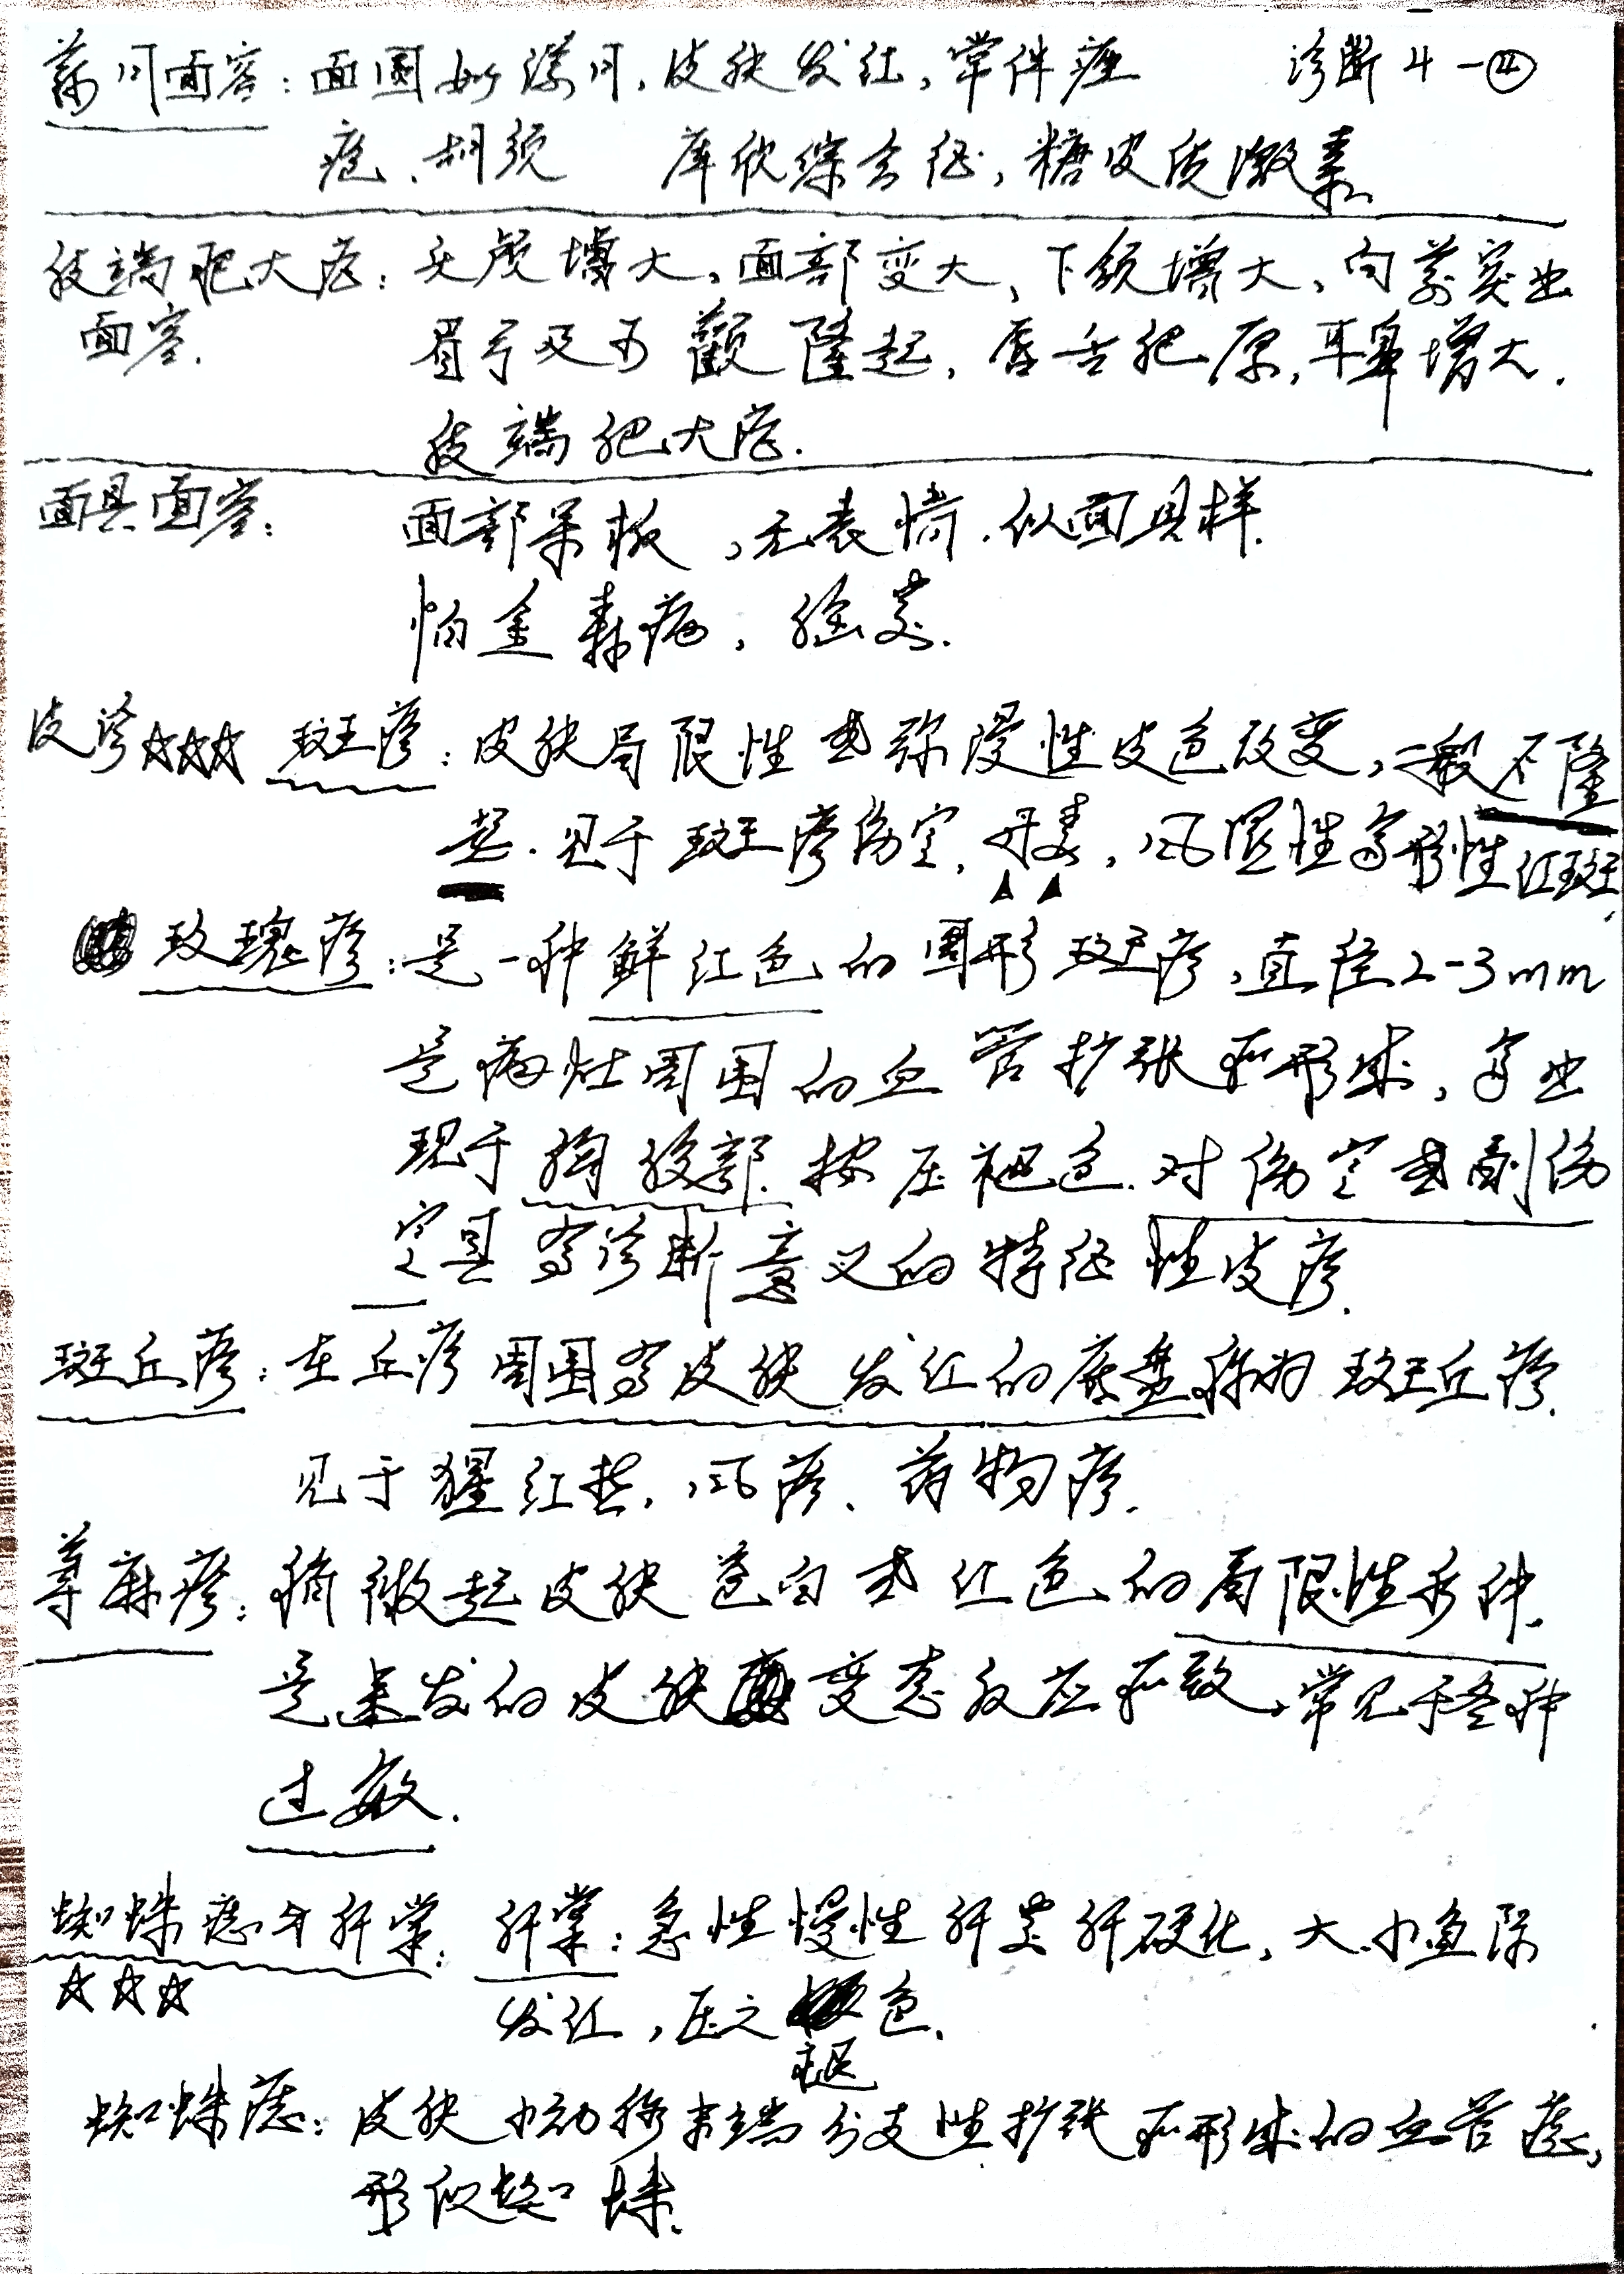 满月面容：面圆如满月，皮肤发红，常伴痤 诊断4-④
疮、胡须 库欣综合征，糖皮质激素
肢端肥大症：头颅增大，面部变大、下颌增大，向前突出
面容. 眉弓及两颧隆起，唇舌肥厚，耳鼻增大.
肢端肥大症.
面具面容： 面部呆板，无表情.似面具样.
怕金森病，脑炎.
皮诊☆☆☆ 斑疹：皮肤局限性或弥漫性皮色改变，一般不隆
起.见于斑疹伤寒，丹毒，风湿性多形性红斑,
玫瑰疹：是一种鲜红色的圆形斑疹，直径2-3mm
是病灶周围的血管扩张所形成，多出
现于胸腹部.按压褪色.对伤寒或副伤
寒具有诊断意义的特征性皮疹.
斑丘疹：在丘疹周围有皮肤发红的底盘称为斑丘疹.
见于猩红热，风疹、药物疹.
荨麻疹：稍微起皮肤苍白或红色的局限性水肿.
是速发的皮肤变态反应所致，常见于各种
过敏.
蜘蛛痣与肝掌：肝掌：急性慢性肝炎肝硬化，大.小鱼际
☆☆☆ 发红，压之褪色.
蜘蛛痣：皮肤小动脉末端分支性扩张所形成的血管痣，
形似蜘蛛.